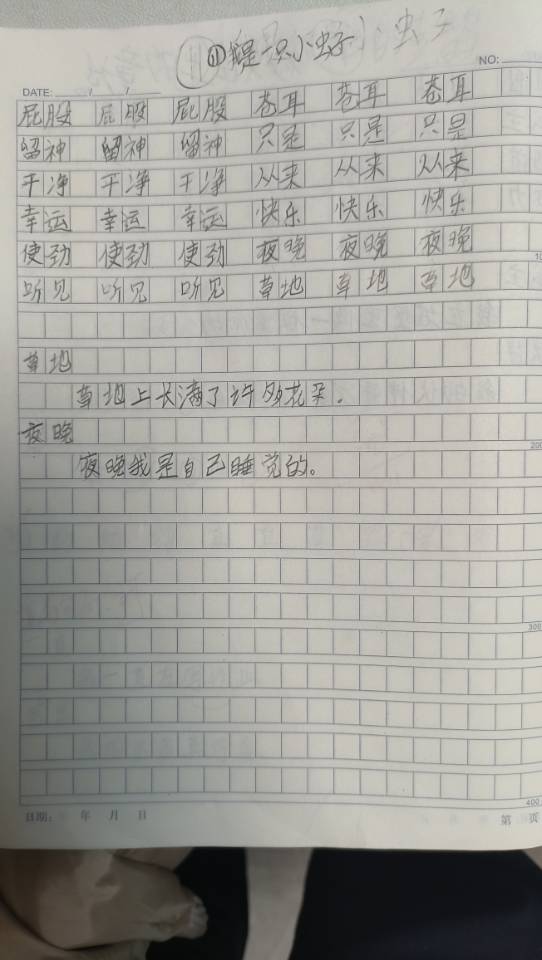 ⑪我是一只小虫子
NO:
DATE: / /
屁股 屁股 屁股 苍耳 苍耳 苍耳
留神 留神 留神 只是 只是 只是
干净 干净 干净 从来 从来 从来
幸运 幸运 幸运 快乐 快乐 快乐
使劲 使劲 使劲 夜晚 夜晚 夜晚
听见 听见 听见 草地 草地 草地
草地
草地上长满了许多花朵。
夜晚
夜晚我是自己睡觉的。
200
300
400
日期: 年 月 日
第 页